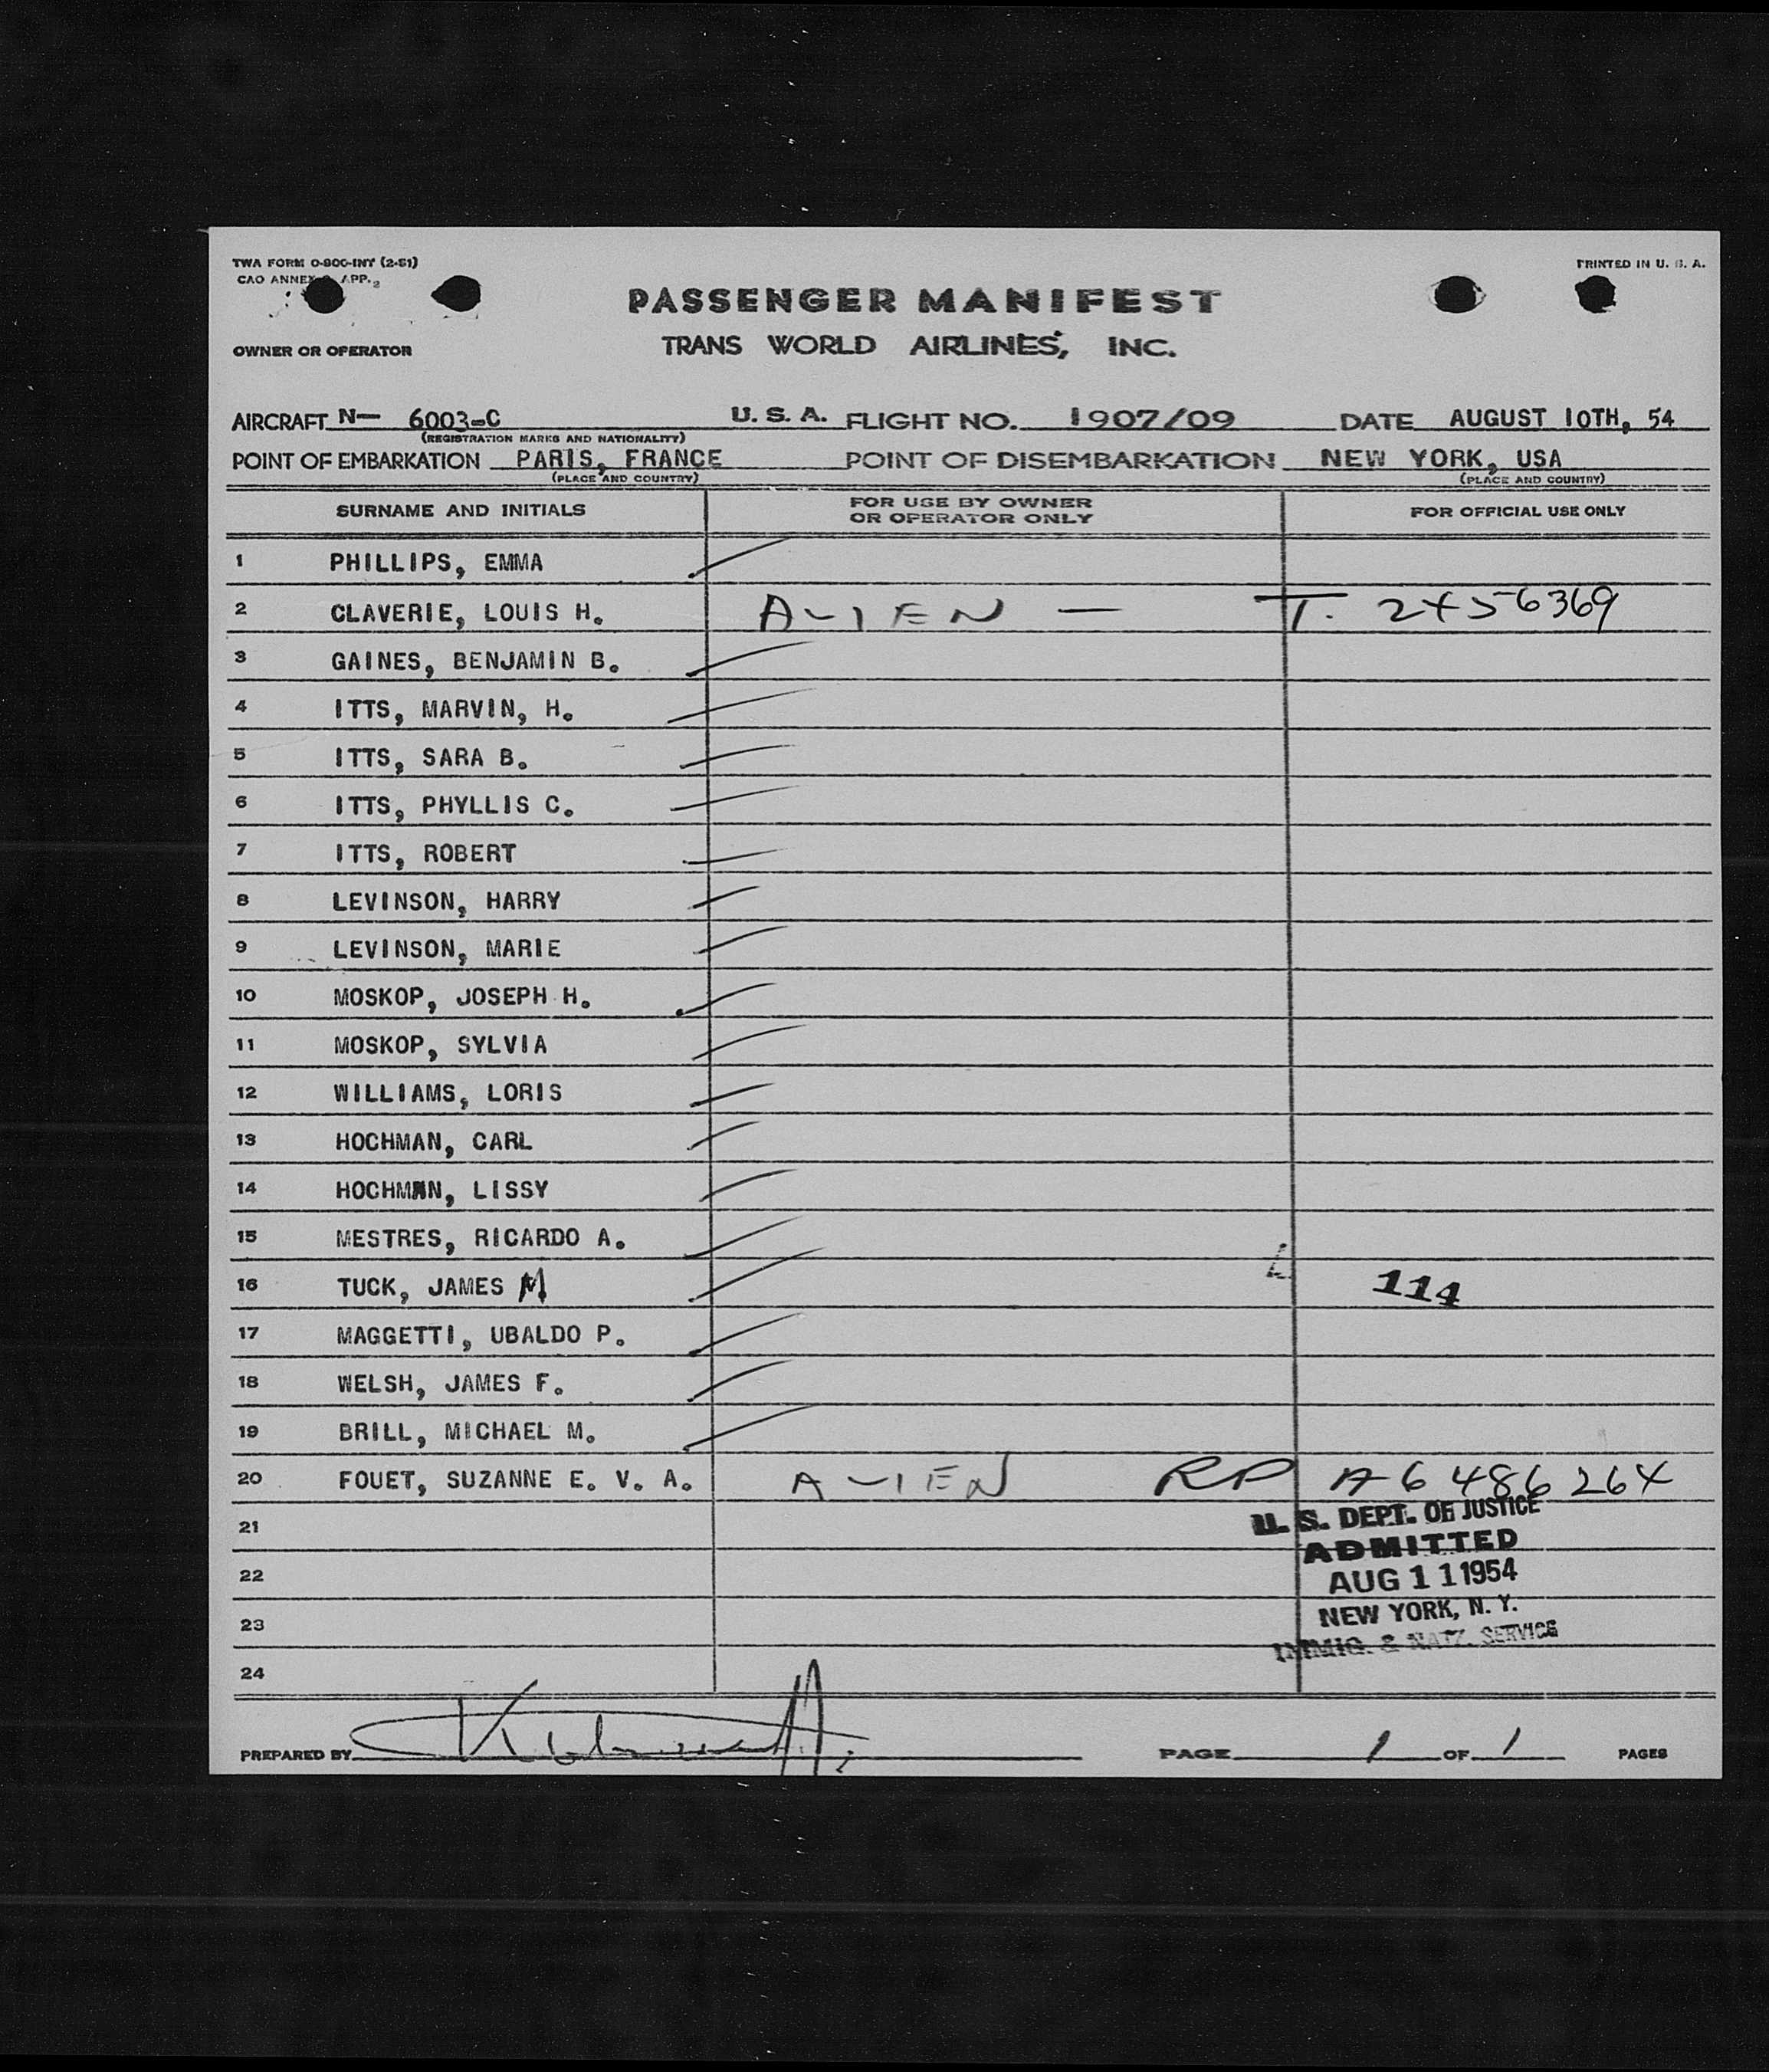 TWA FORM O-800-INT (2-51)
PRINTED IN U. S. A.
CAO ANNEX APP. 2
PASSENGER MANIFEST
OWNER OR OPERATOR
TRANS WORLD AIRLINES, INC.
AIRCRAFT N— 6003-C U. S. A. FLIGHT NO. 1907/09 DATE AUGUST 10TH, 54
(REGISTRATION MARKS AND NATIONALITY)
POINT OF EMBARKATION PARIS, FRANCE POINT OF DISEMBARKATION NEW YORK, USA
(PLACE AND COUNTRY) (PLACE AND COUNTRY)
SURNAME AND INITIALS FOR USE BY OWNER OR OPERATOR ONLY FOR OFFICIAL USE ONLY
1 PHILLIPS, EMMA
2 CLAVERIE, LOUIS H. ALIEN — T. 2456369
3 GAINES, BENJAMIN B.
4 ITTS, MARVIN, H.
5 ITTS, SARA B.
6 ITTS, PHYLLIS C.
7 ITTS, ROBERT
8 LEVINSON, HARRY
9 LEVINSON, MARIE
10 MOSKOP, JOSEPH H.
11 MOSKOP, SYLVIA
12 WILLIAMS, LORIS
13 HOCHMAN, CARL
14 HOCHMAN, LISSY
15 MESTRES, RICARDO A.
16 TUCK, JAMES M 114
17 MAGGETTI, UBALDO P.
18 WELSH, JAMES F.
19 BRILL, MICHAEL M.
20 FOUET, SUZANNE E. V. A. ALIEN RP A6 486 264
21
22
23
24
U. S. DEPT. OF JUSTICE
ADMITTED
AUG 11 1954
NEW YORK, N. Y.
IMMIG. & NATZ. SERVICE
PREPARED BY PAGE 1 OF 1 PAGES